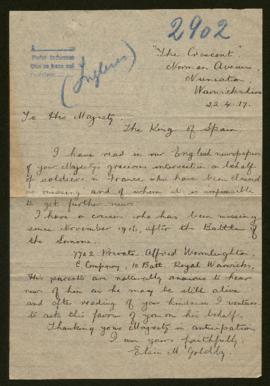 2902
(Ingleses)
"The Crescent"
Norman Avenue
Nuneaton,
Warwickshire
22.4.17.
To His Majesty
The King of Spain
I have read in our English newspapers
of your Majesty's gracious intercession on behalf
of soldiers in France, who have been classed
as missing and of whom it is impossible
to get further news.
I have a cousin who has been missing
since November 1916, after the Battle of
the Somme.
Private Alfred
E Company, 10 Batt. Royal Warwicks.
His parents are naturally anxious to hear
news of him as he may be still alive
and after reading of your kindness I venture
to ask this favour of you on his behalf.
Thanking your Majesty in anticipation,
I am yours faithfully
Elsie M.